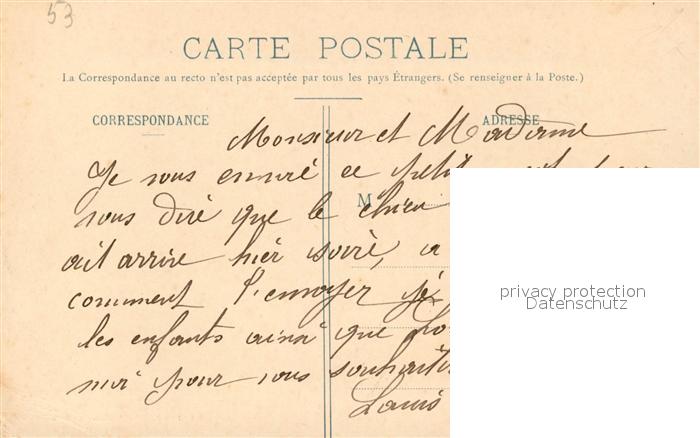 53
CARTE POSTALE
La Correspondance au recto n'est pas acceptée par tous les pays Étrangers. (Se renseigner à la Poste.)
CORRESPONDANCE
ADRESSE
M
Monsieur et Madame
Je vous envoié ce petit
vous dire que le chien
ait arrive hier soiré, a
comment l'envoyer
les enfants ainsi que
moi pour vous
Louis
privacy protection
Datenschutz